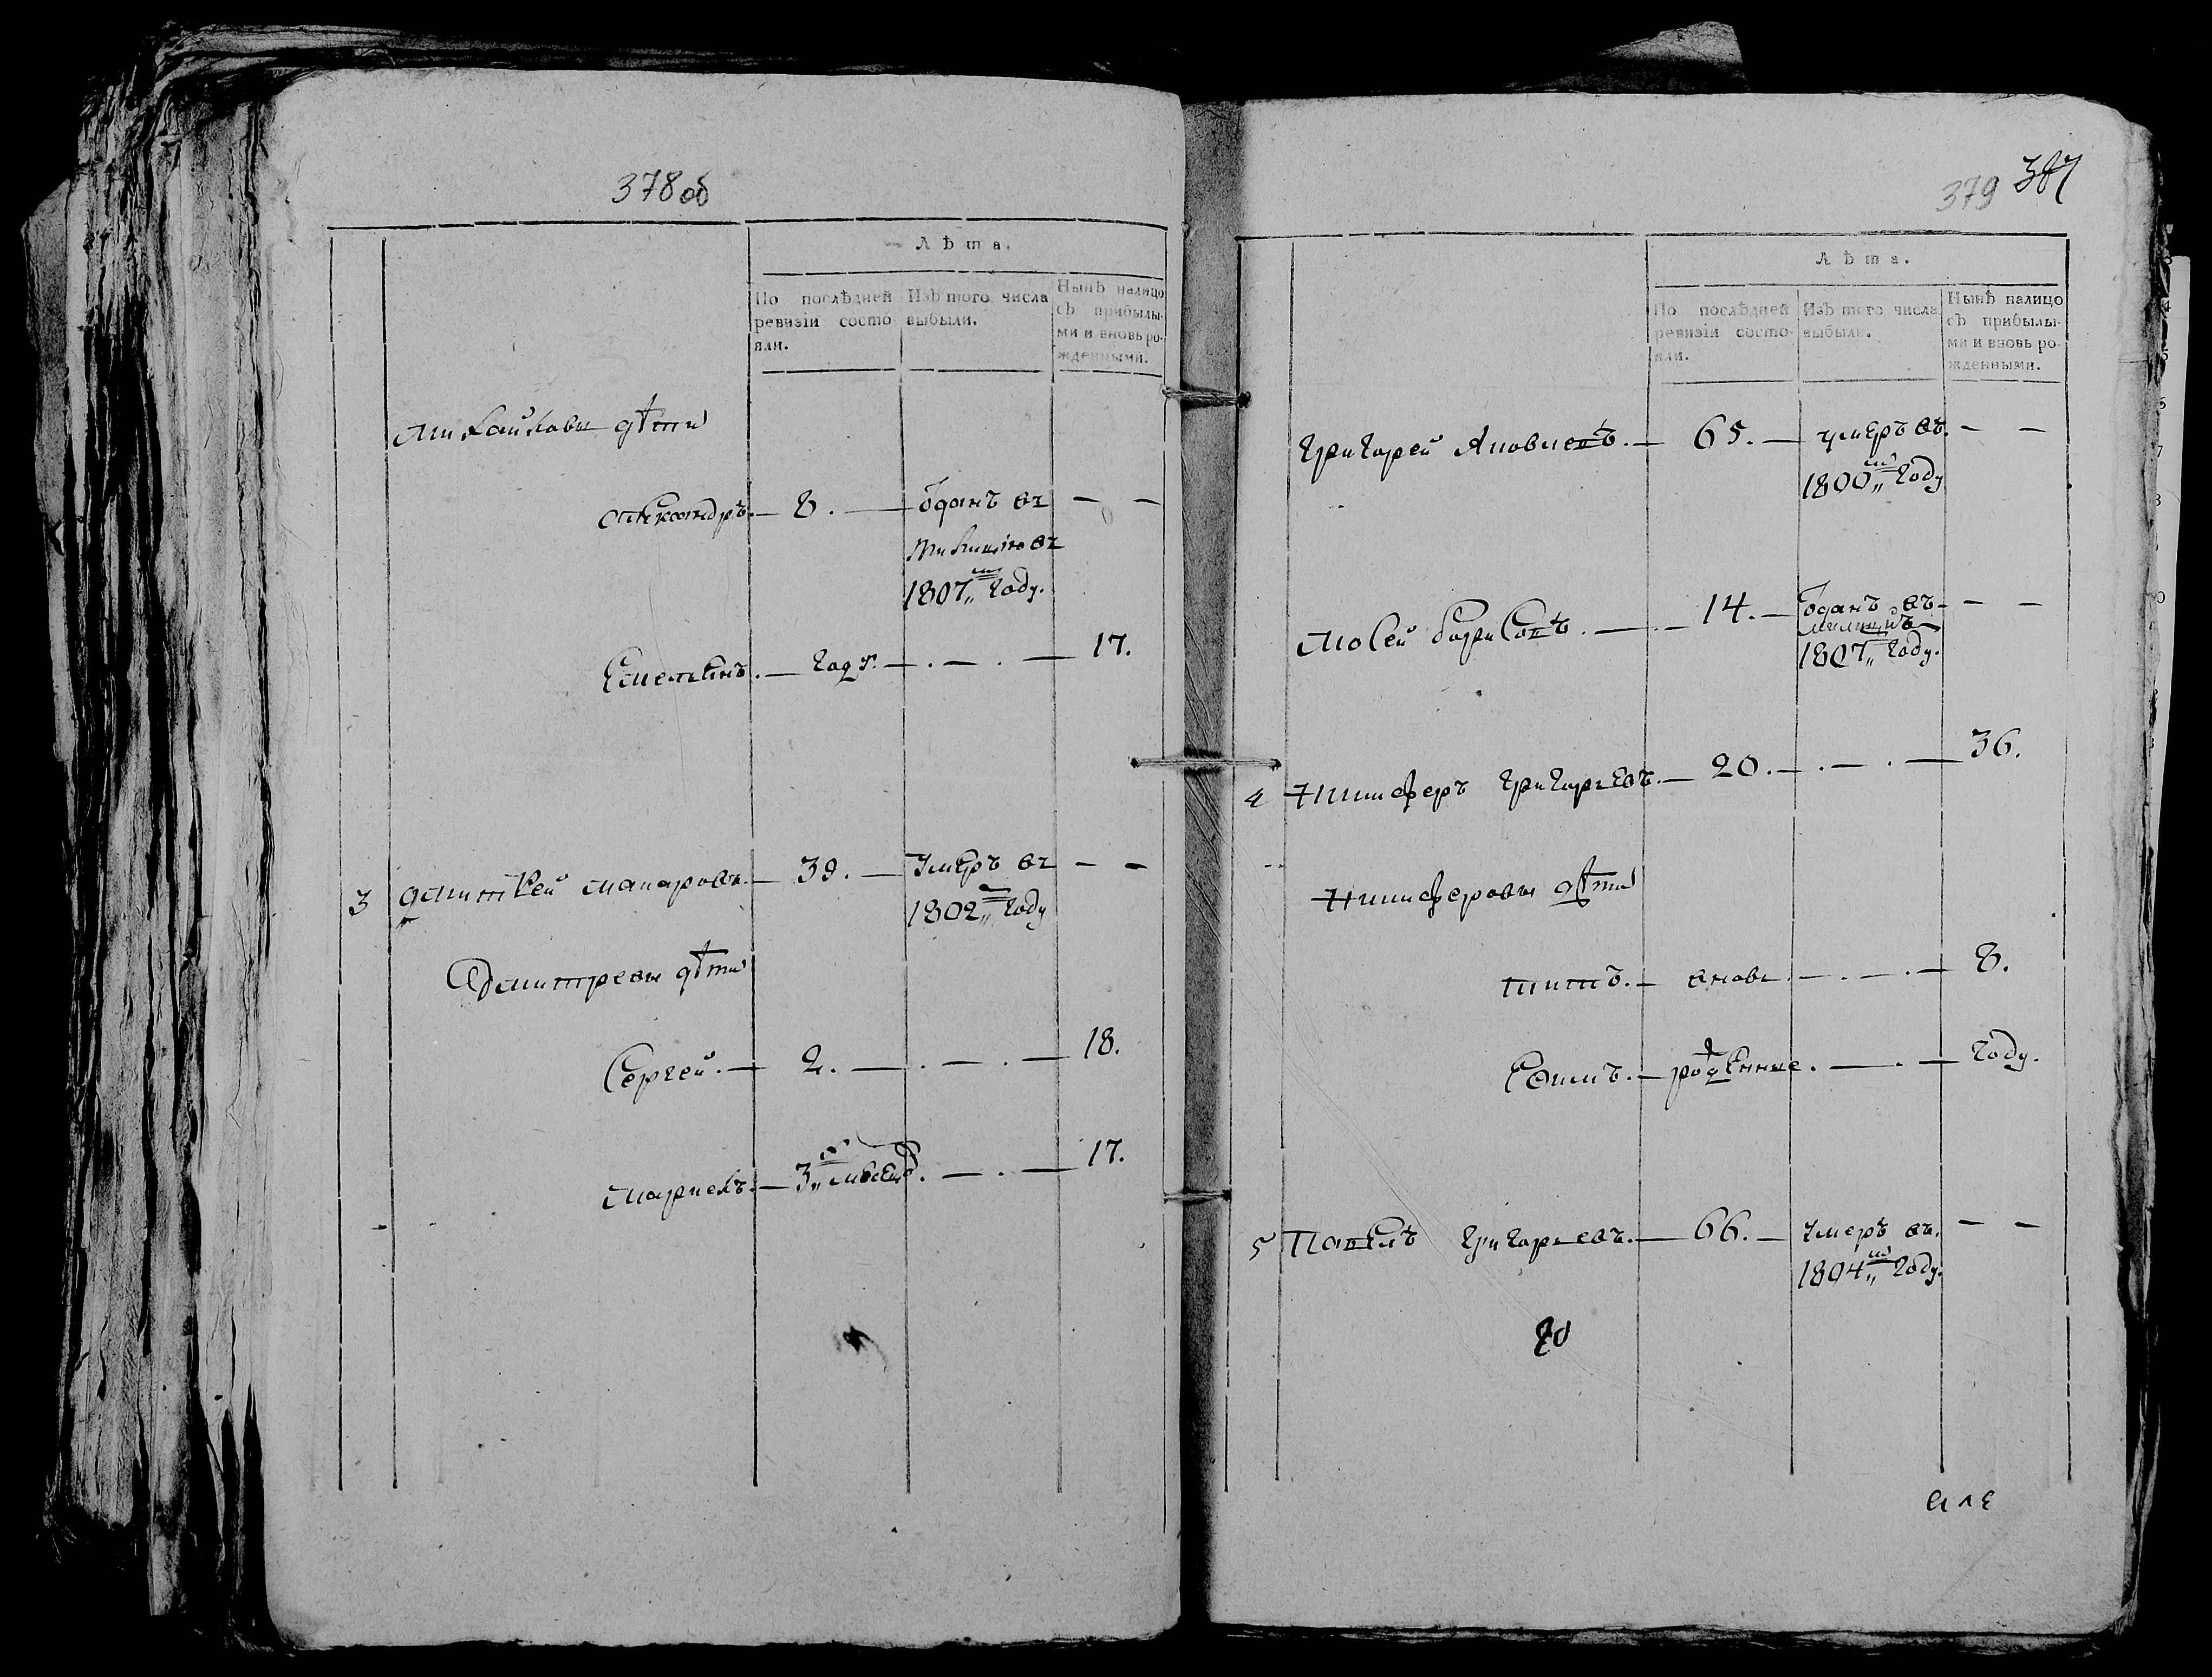 378 об
Лѣта.
По послѣдней ревизіи состояли.
Изъ того числа выбыли.
Нынѣ налицо съ прибылыми и вновь рожденными.
Михайлавы дѣти
Александръ. 8. Одданъ въ
милицию въ
1807,, году.
Емельянъ. году. 17.
3 Дмитрей Макаровъ 39. Умеръ въ
1802,, году
Дмитревы дѣти
Сергей. 2. 18.
Маркелъ. 3,, 17.
379
Лѣта.
По послѣдней ревизіи состояли.
Изъ того числа выбыли.
Нынѣ налицо съ прибылыми и вновь рожденными.
Григорей Яковлевъ. 65. умеръ въ
1800,, году
Мосей Борисовъ. 14. Одданъ въ
милицию
1807,, году.
4 Никиферъ Григорьевъ. 20. 36.
Никиферовы дѣти
Титъ. вновь 8.
Ефимъ. рожденные. году.
5 Павелъ Григорьевъ. 66. Умеръ въ
1804,, году.